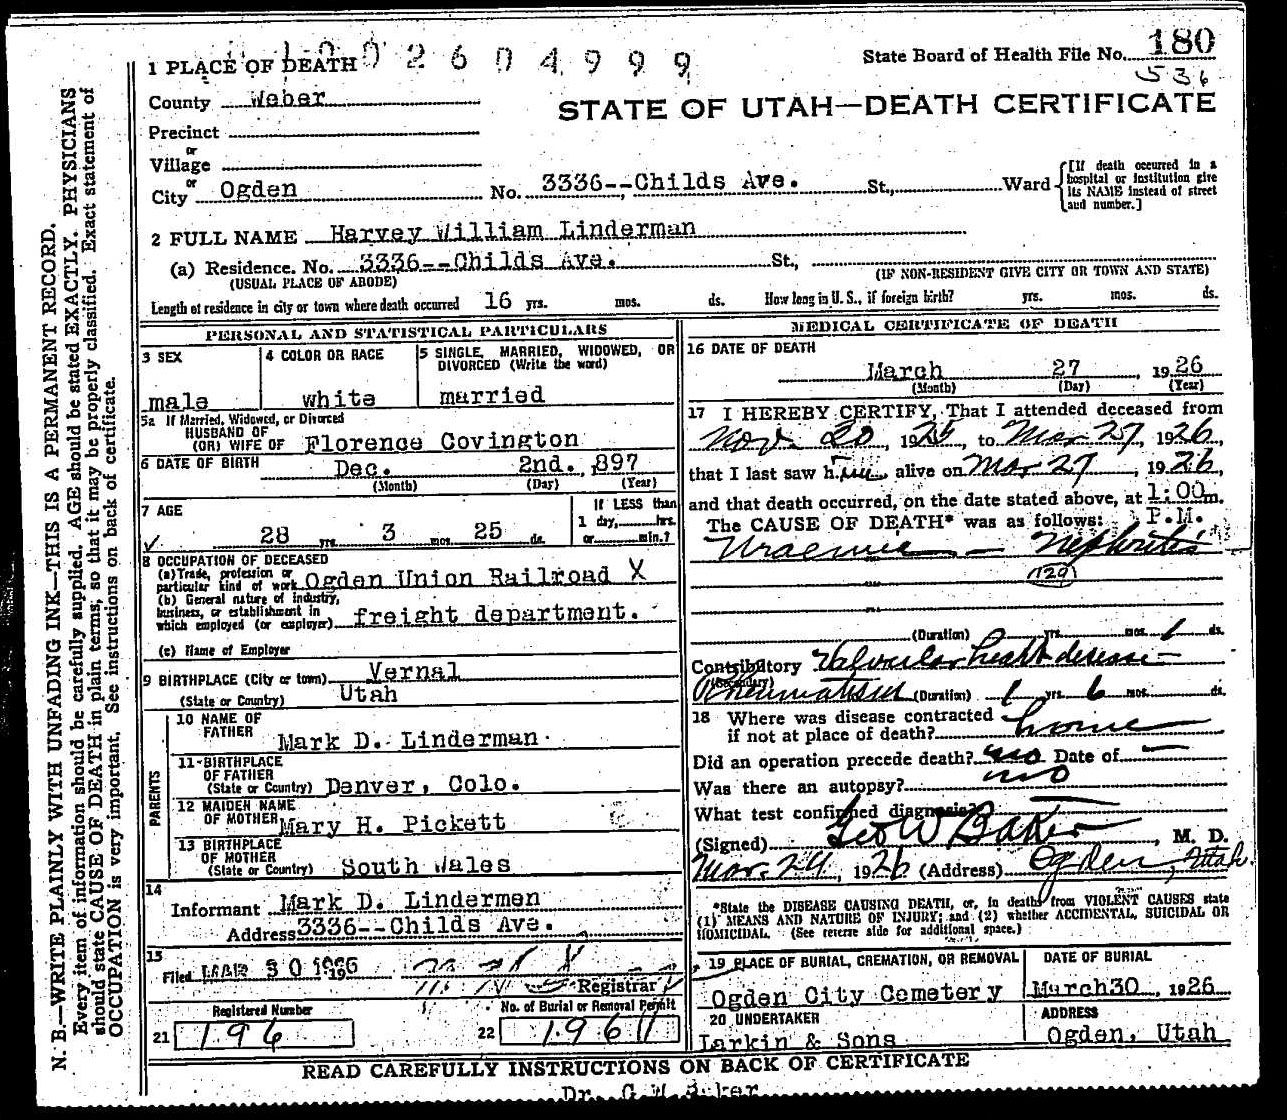 1 0 0 2 6 0 4 9 9 9
1 PLACE OF DEATH
State Board of Health File No. 180
536
County Weber
STATE OF UTAH—DEATH CERTIFICATE
Precinct
or
Village
or
City Ogden No. 3336--Childs Ave. St., Ward
[If death occurred in a hospital or institution give its NAME instead of street and number.]
2 FULL NAME Harvey William Linderman
(a) Residence. No. 3336--Childs Ave. St.,
(USUAL PLACE OF ABODE) (IF NON-RESIDENT GIVE CITY OR TOWN AND STATE)
Length of residence in city or town where death occurred 16 yrs. mos. ds. How long in U. S., if foreign birth? yrs. mos. ds.
PERSONAL AND STATISTICAL PARTICULARS
3 SEX
male
4 COLOR OR RACE
white
5 SINGLE, MARRIED, WIDOWED, OR DIVORCED (Write the word)
married
5a If Married, Widowed, or Divorced
HUSBAND OF
(OR) WIFE OF Florence Covington
6 DATE OF BIRTH Dec. 2nd. , 897
(Month) (Day) (Year)
7 AGE
28 yrs. 3 mos. 25 ds.
If LESS than
1 day, hrs.
or min.?
8 OCCUPATION OF DECEASED
(a) Trade, profession or
particular kind of work Ogden Union Railroad X
(b) General nature of industry,
business, or establishment in
which employed (or employer) freight department.
(c) Name of Employer
9 BIRTHPLACE (City or town) Vernal
(State or Country) Utah
PARENTS
10 NAME OF
FATHER Mark D. Linderman
11 BIRTHPLACE
OF FATHER
(State or Country) Denver, Colo.
12 MAIDEN NAME
OF MOTHER Mary H. Pickett
13 BIRTHPLACE
OF MOTHER
(State or Country) South Wales
14
Informant Mark D. Lindermen
Address 3336--Childs Ave.
15
Filed MAR 30 1926
Registrar
Registered Number
21 196
No. of Burial or Removal Permit
22
MEDICAL CERTIFICATE OF DEATH
16 DATE OF DEATH
March 27 , 1926
(Month) (Day) (Year)
17 I HEREBY CERTIFY, That I attended deceased from
Nov. 20, 1925, to Mar 27, 1926,
that I last saw him alive on Mar 27, 1926,
and that death occurred, on the date stated above, at 1:00 m.
The CAUSE OF DEATH* was as follows: P.M.
Uraemia — Nephritis
129
(Duration) yrs. mos. 1 ds.
Contributory Valvular heart disease —
(Secondary)
Rheumatism (Duration) 1 yrs. 6 mos. ds.
18 Where was disease contracted
if not at place of death? home
Did an operation precede death? no Date of —
Was there an autopsy? no
What test confirmed diagnosis?
(Signed) Geo W Baker, M. D.
Mar. 29, 1926 (Address) Ogden, Utah
*State the DISEASE CAUSING DEATH, or, in deaths from VIOLENT CAUSES state
(1) MEANS AND NATURE OF INJURY; and (2) whether ACCIDENTAL, SUICIDAL OR
HOMICIDAL. (See reverse side for additional space.)
19 PLACE OF BURIAL, CREMATION, OR REMOVAL
Ogden City Cemetery
DATE OF BURIAL
March 30 , 1926
20 UNDERTAKER
Larkin & Sons
ADDRESS
Ogden, Utah
READ CAREFULLY INSTRUCTIONS ON BACK OF CERTIFICATE
Dr. G W Baker
N. B.—WRITE PLAINLY WITH UNFADING INK—THIS IS A PERMANENT RECORD.
Every item of information should be carefully supplied. AGE should be stated EXACTLY. PHYSICIANS
should state CAUSE OF DEATH in plain terms, so that it may be properly classified. Exact statement of
OCCUPATION is very important. See instructions on back of certificate.